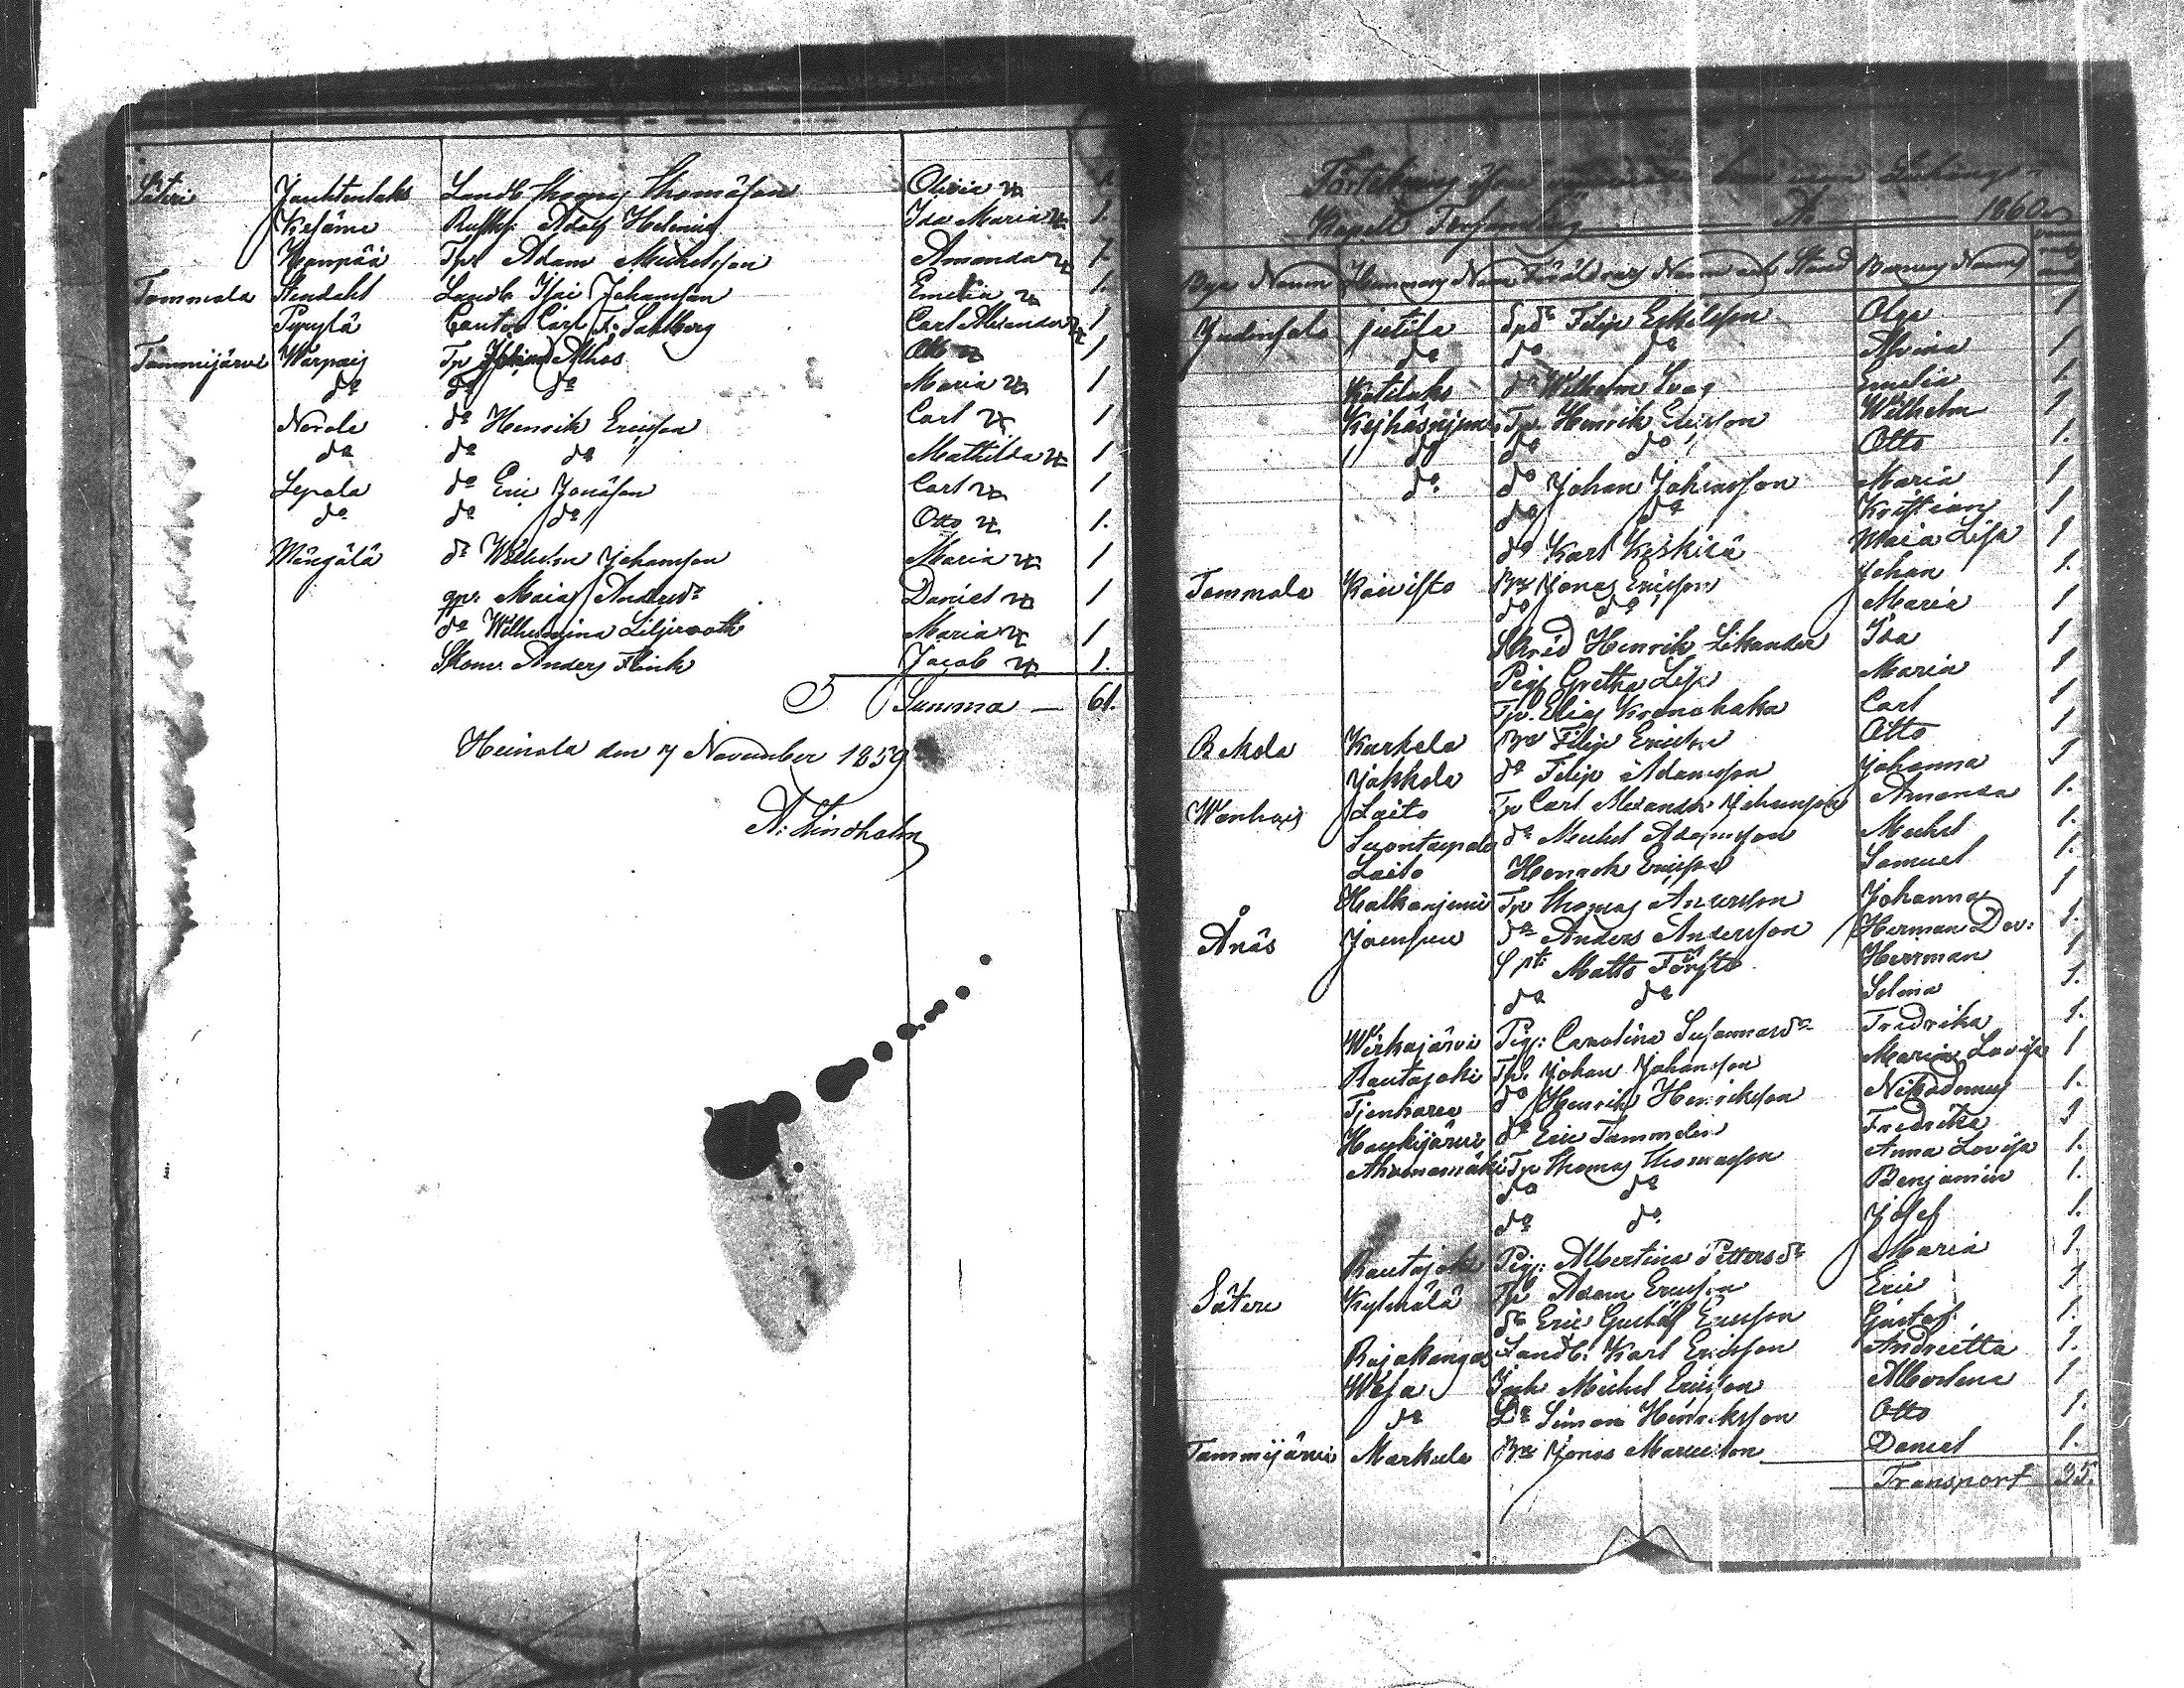 Säteri Jauhtenlaks Landb Thomas Thomasson Olivia 1.
Kesäme Rusth: Adolf Helenius Ida Maria 1.
Hanpää Tpr Adam Michelsson Amanda 1
Tommola Stendahl Landb Isai Johansson Emelia 1.
Pyrylä Cantor Carl F. Sahlberg Carl Alexander 1
Tammijärvi Warpais Tp Johan Alhos Otto 1
do do do Maria 1
Nerola do Henrik Ericsson Carl 1
do do do Mathilda 1
Lepola do Eric Jonasson Carl 1
do do do Otto 1.
Mängälä do Wilhelm Johansson Maria 1
qv. Maia Andersdr Daniel 1
do Wilhelmina Liljeroth Maria 1
Skom. Anders Flink Jacob 1.
Summa — 61.
Heinola den 7 November 1859
A: Lindholm
Förtekning
Kapell Församling Ao 1860
Bya Namn Hemmans Namn Föräldrars Namn och Stånd Barnens Namn
Judinsalo jutila Filip Eskilsson Olga 1
do do do Alvina 1
Katilaks do Wilhelm Emelia 1
Tp. Henrik Ericsson Wilhelm 1
do do do Otto 1.
do do Johan Johansson Maria 1
do do Kristian 1
do Karl Maia Lisa 1
Tommola Koivisto Bd Jonas Ericsson Johan 1.
do do Maria 1
Skräd Henrik Sikander Ida 1
Pig. Gretha Lisa Maria 1
Tp. Elias Kronohaka Carl 1
Bekola Karkola Bd Filip Ericsson Otto 1
Jokkola do Filip Adamsson Johanna 1
Wanhais Laito Tp Carl Alexander Johansson Amanda 1.
Suontaipale do Michel Adamsson Michel 1.
Laito Henrick Ericsson Samuel 1.
Halkoniemi Tp Thomas Andersson Johanna 1
Ånäs Joensuu do Anders Andersson Herman Dav: 1.
Matts Herrman 1
do do Selma 1.
Wirkajärvi Pig: Carolina Susannasdr Fredrika 1.
Rautajoki Tp. Johan Johansson Maria Lovisa 1
do Henrik Henricksson Nikodemus 1.
Haukijärvi do Eric Tammelin Fredrika 1
Ahvenmäki Tp Thomas Thomasson Anna Lovisa 1.
do do Benjamin 1.
do do Josef 1.
Rautajoki Pig: Albertina Pettersdr Maria 1.
Sätere Kylmälä Tp Adam Ericsson Eric 1
do Eric Gustaf Ericsson Gustaf 1.
Rajakangas Landb: Karl Ericsson Andrietta 1.
Wesa Michel Ericsson Albertina 1
do Do Simon Henricksson Otto 1.
Tammijärvi Markula Bd Jonas Daniel 1.
Transport 35.